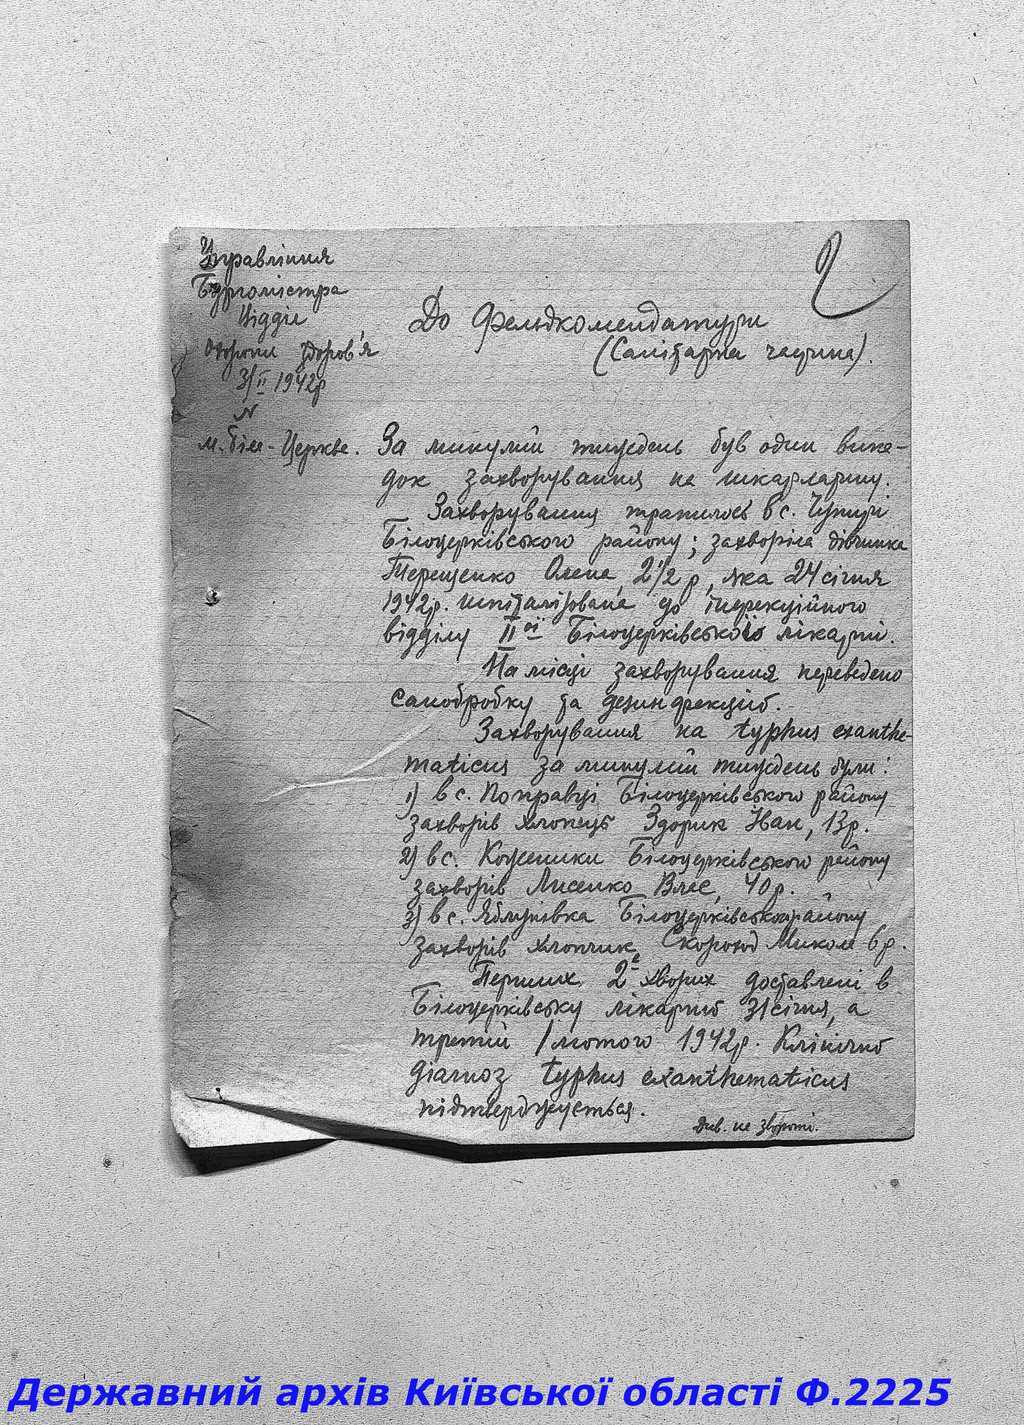 Управління
Бургомістра
Відділ
Охорони Здоров'я
3/II 1942р
N
м. Біла-Церква.
2
До Фельдкомендатури
(Санітарна частина).
За минулий тиждень був один випа-
док захворування на шкарлатину.
Захворування трапилось в с. Чупирі
Білоцерківського району; захворіла дівчинка
Терещенко Олена, 2 1/2 р, яка 24 січня
1942р. шпіталізована до інфекційного
відділу II ої Білоцерківської лікарні.
На місці захворування переведено
санобробку та дезинфекцію.
Захворування на typhus exanthe-
maticus за минулий тиждень були:
1) в с. Поправці Білоцерківського району
захворів хлопець Здорик Іван, 13р.
2) в с. Коженики Білоцерківського району
захворів Лисенко Влас, 40р.
3) в с. Яблунівка Білоцерківського району
захворів хлопчик Скороход Микола 6р.
Перших 2-х хворих доставлені в
Білоцерківську лікарню 31 січня, а
третій 1 лютого 1942р. Клінічно
діагноз typhus exanthematicus
підтверджується.
Див. на звороті.
Державний архів Київської області Ф.2225